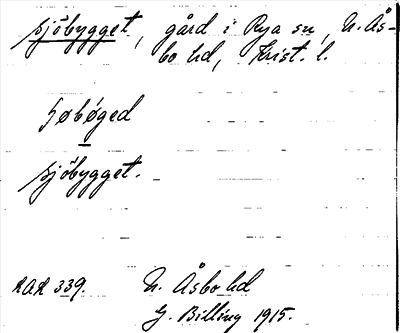 Sjöbygget, gård i Rya sn, N. Ås-
bo hd, Krist. l.
ʃøbøged
Sjöbygget.
RAÄ 339. N. Åsbo hd
G. Billing 1915.